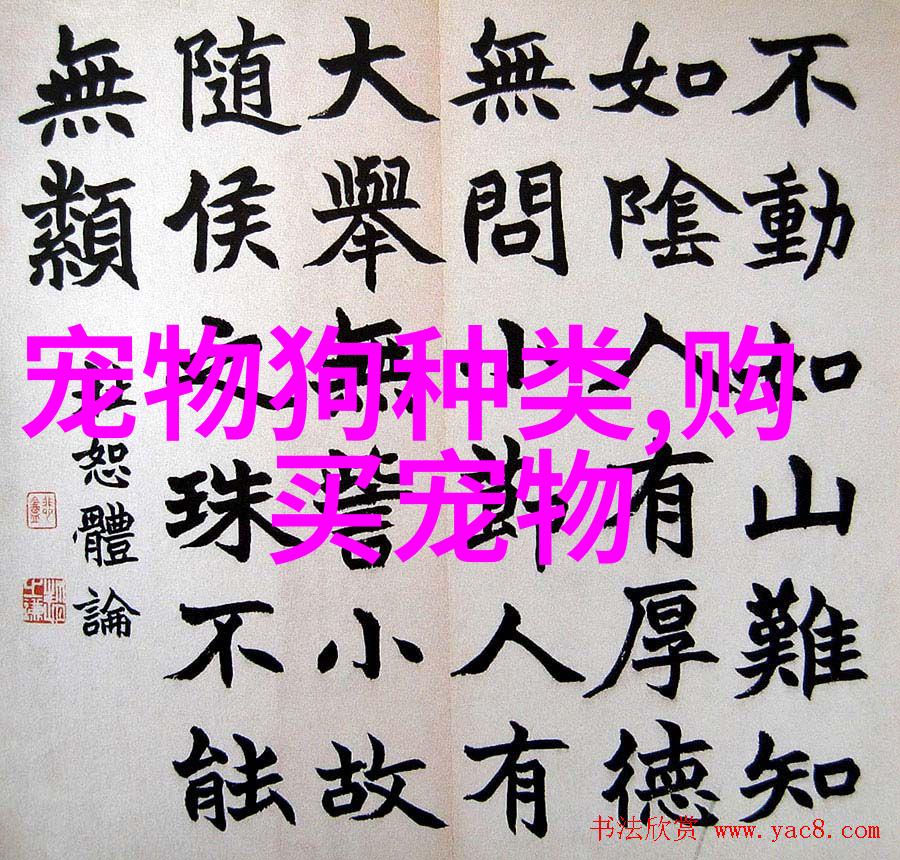 不動如山難知
如陰人有厚德
無問小節人有
大舉無訾小故
隨侯之珠不能
無纇
恕體論
宠物狗种类,购
买宠物
书法欣赏 www.yac8.com